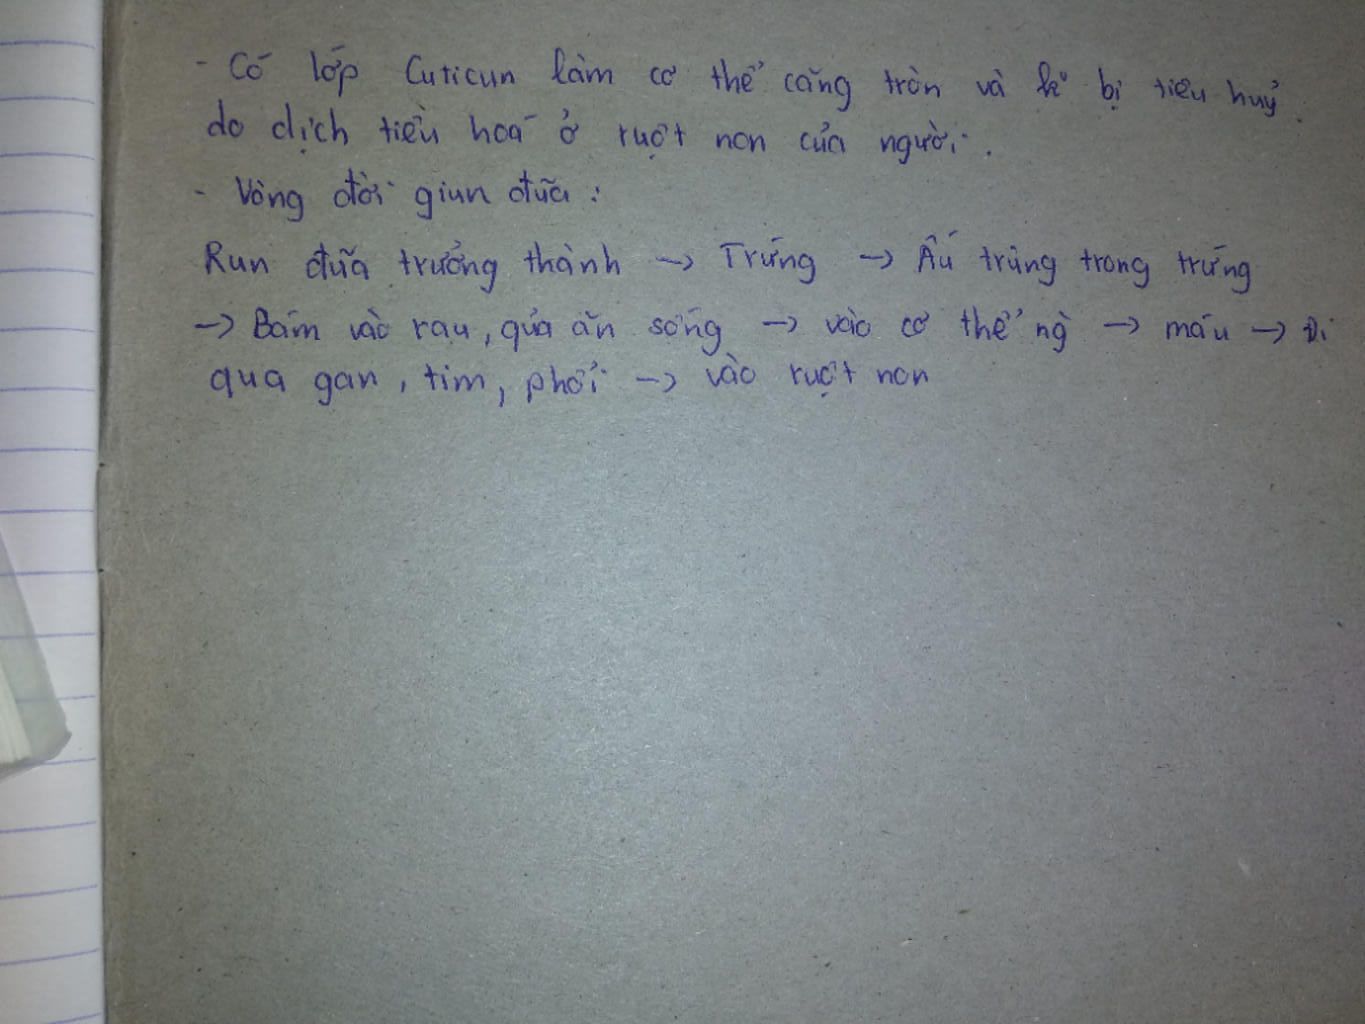 - Có lớp Cuticun làm cơ thể căng tròn và k° bị tiêu huỷ
do dịch tiêù hoá ở ruột non của người.
- Vòng đời giun đũa:
Run đũa trưởng thành → Trứng → Ấu trùng trong trứng
→ Bám vào rau, qủa ăn sống → vào cơ thể ng̀ → máu → Đi
qua gan, tim, phổi → vào ruột non